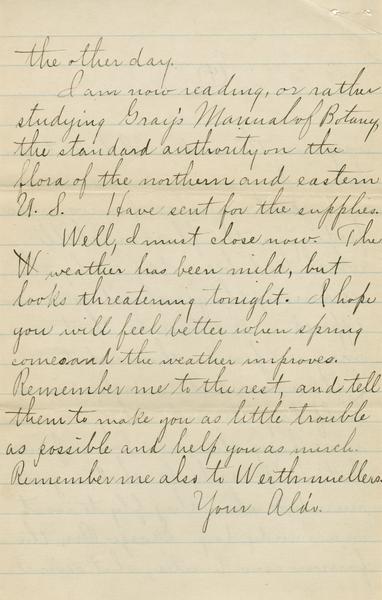 the other day.
I am now reading, or rather
studying Gray's Manual of Botany,
the standard authority on the
flora of the northern and eastern
U. S. Have sent for the supplies.
Well, I must close now. The
weather has been mild, but
looks threatening tonight. I hope
you will feel better when spring
comes and the weather improves.
Remember me to the rest, and tell
them to make you as little trouble
as possible and help you as much.
Remember me also to Werthmuellers.
Your Aldo.